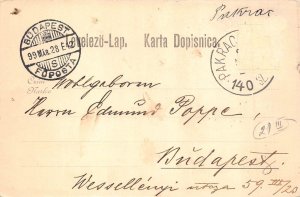 Pakrac
BUDAPEST
99 MÁR. 28 E.
S
FŐPOSTA
elező-Lap. Karta Dopisnica
PAKRAC
140
Wohlgeboren
Herrn Edmund Poppe,
Budapest
Wesselényi utcza 59. III/20